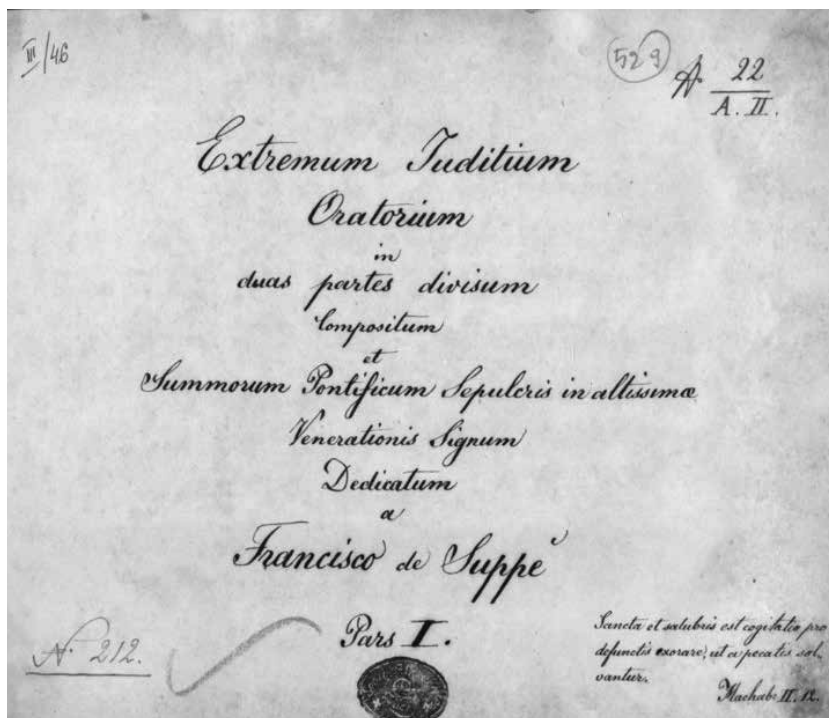 III/46
529
N. 22
A. II.
Extremum Iuditium
Oratorium
in
duas partes divisum
Compositum
et
Summorum Pontificum Sepulcris in altissimæ
Venerationis Signum
Dedicatum
a
Francisco de Suppé
Pars I.
N. 212.
Sancta et salubris est cogitatio pro
defunctis exorare, ut a pecatis sol,
vantur.
Machab. II. 12.